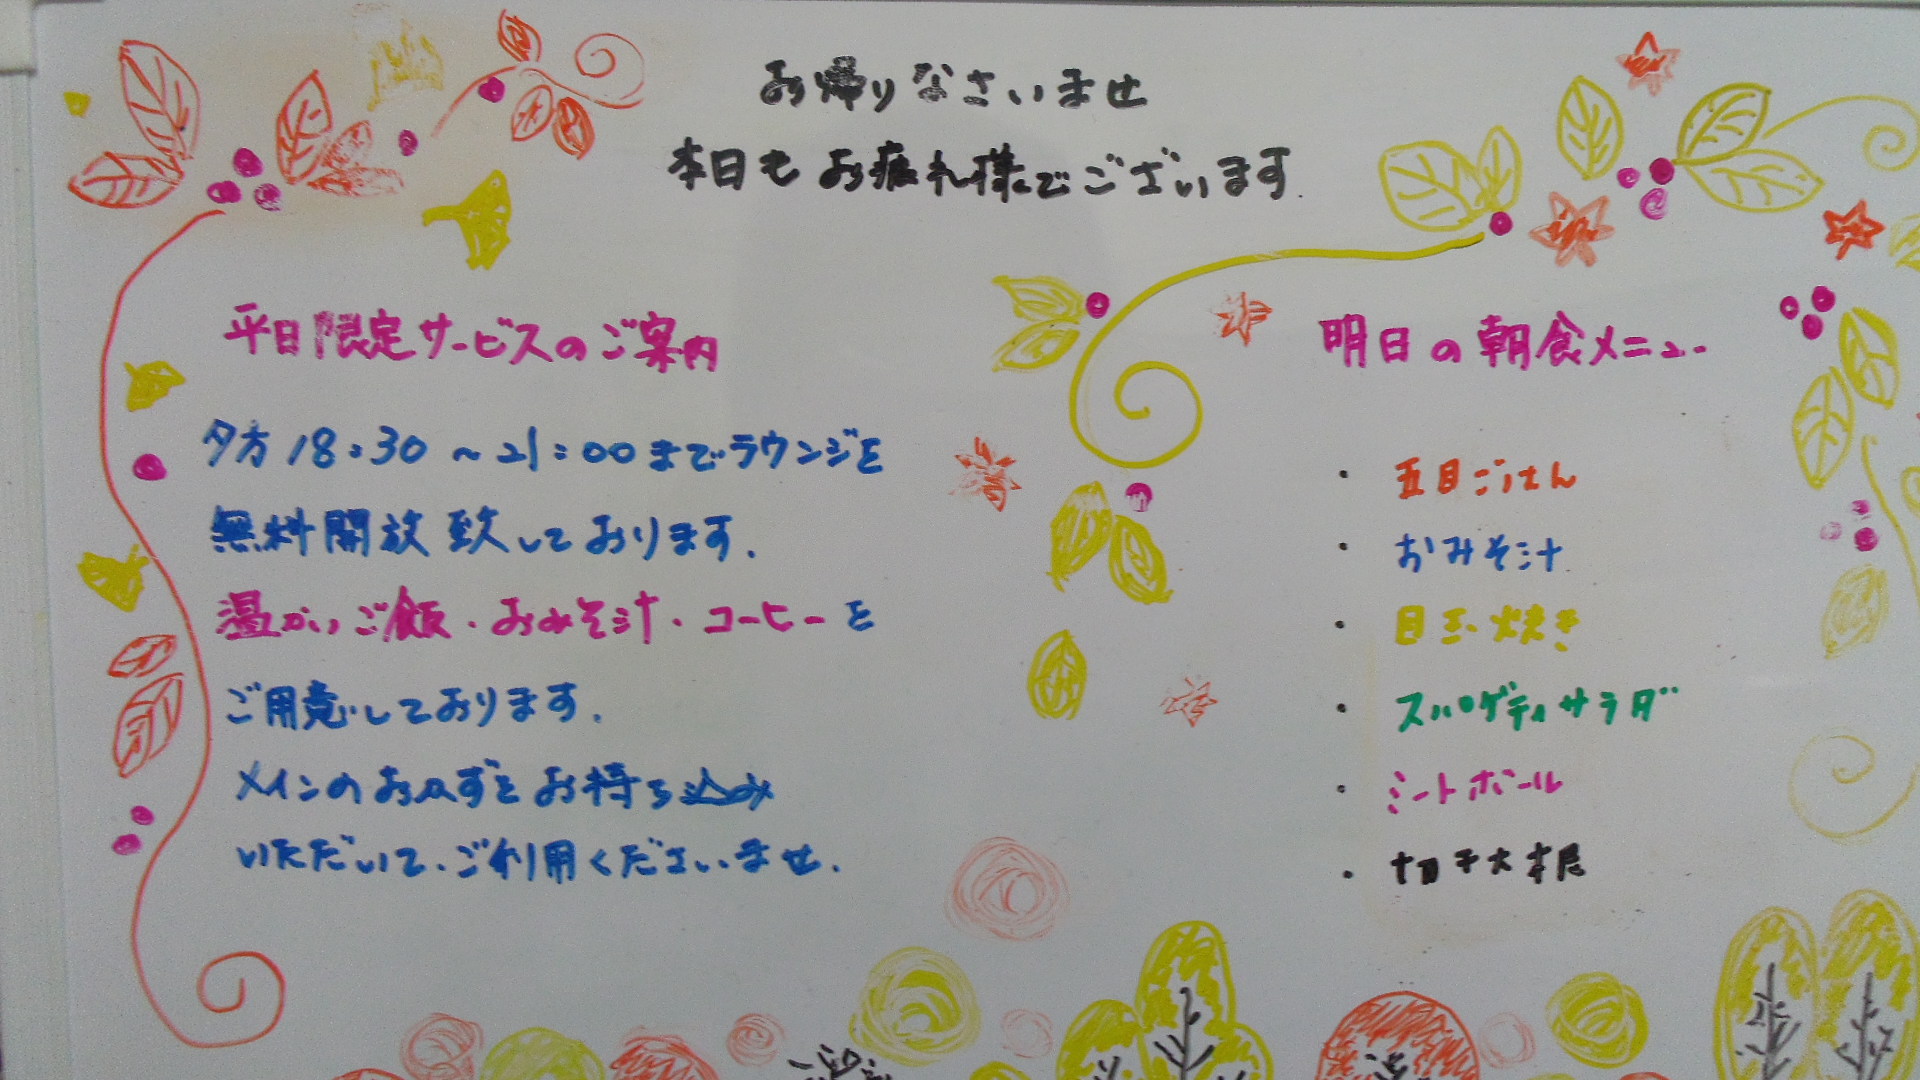 お帰りなさいませ
本日もお疲れ様でございます.
平日限定サービスのご案内
夕方 18:30 ~ 21:00までラウンジを
無料開放致しております.
温かいご飯・おみそ汁・コーヒーを
ご用意しております.
メインのおかずをお持ち込み
いただいて、ご利用くださいませ.
明日の朝食メニュー
・ 五目ごはん
・ おみそ汁
・ 目玉焼き
・ スパゲティサラダ
・ ミートボール
・ 切干大根